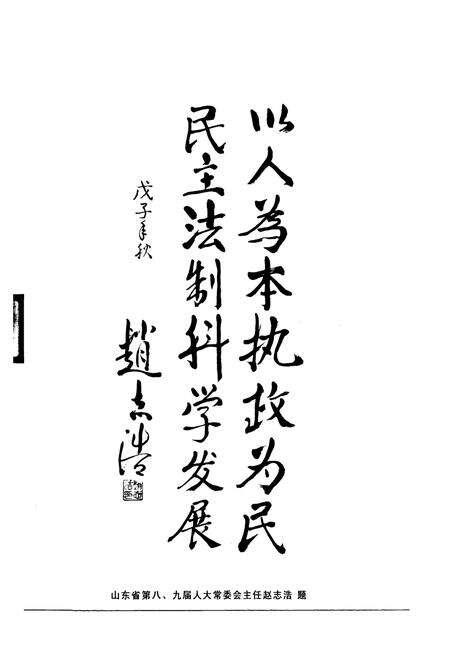 以人為本执政为民
民主法制科学发展
戊子年秋
趙志浩
山东省第八、九届人大常委会主任赵志浩 题